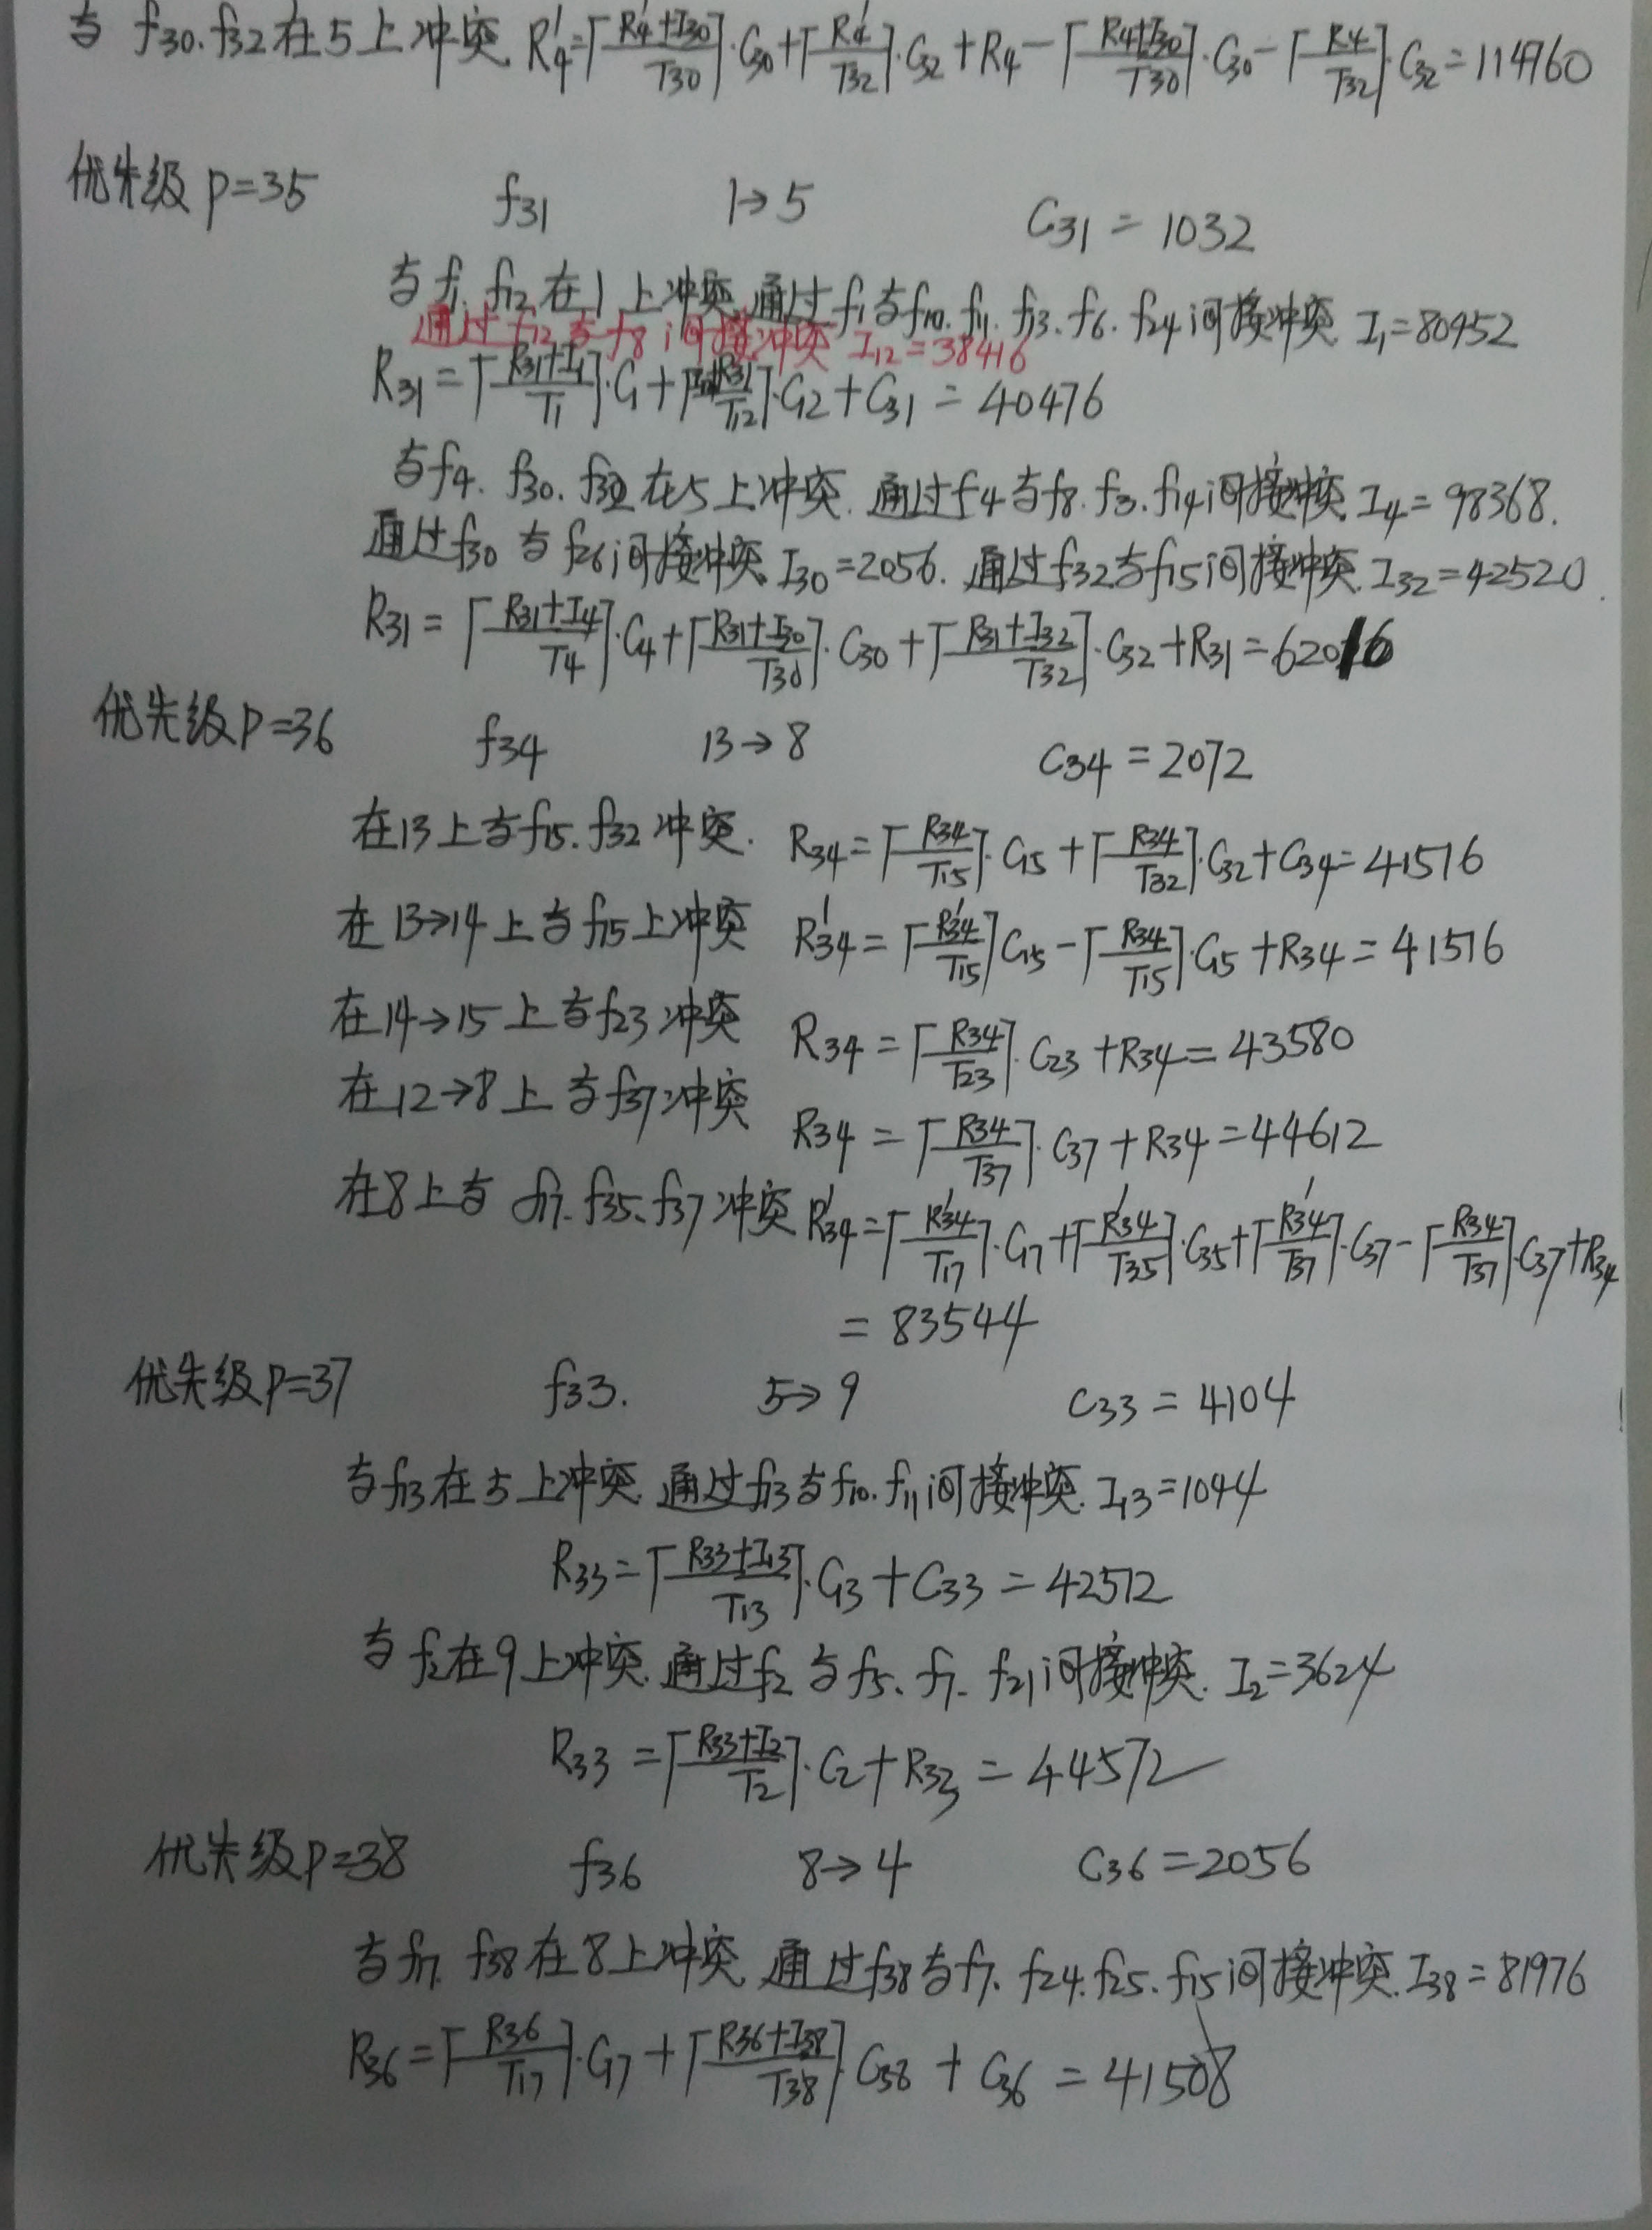 与 f30.f32在5上冲突 R4'=⌈(R4'+I30)/T30⌉·C30+⌈R4'/T32⌉·C32+R4-⌈(R4+I30)/T30⌉·C30-⌈R4/T32⌉·C32=114960
优先级 P=35 f31 1→5 C31=1032
与f1.f12在1上冲突.通过f1与f10.f11.f13.f6.f24间接冲突 I1=80952
通过f12与f8间接冲突 I12=38416
R31=⌈(R31+I1)/T1⌉·C1+⌈(I12+R31)/T12⌉·C12+C31=40476
与f4.f30.f32在5上冲突.通过f4与f8.f3.f14间接冲突.I4=98368.
通过f30与f26间接冲突.I30=2056.通过f32与f15间接冲突.I32=42520.
R31=⌈(R31+I4)/T4⌉·C4+⌈(R31+I30)/T30⌉·C30+⌈(R31+I32)/T32⌉·C32+R31=62016
优先级P=36 f34 13→8 C34=2072
在13上与f15.f32冲突. R34=⌈R34/T15⌉·C15+⌈R34/T32⌉·C32+C34=41576
在13→14上与f15上冲突 R34'=⌈R34'/T15⌉C15-⌈R34/T15⌉·C15+R34=41576
在14→15上与f23冲突 R34=⌈R34/T23⌉·C23+R34=43580
在12→8上与f37冲突 R34=⌈R34/T37⌉·C37+R34=44612
在8上与f17.f35.f37冲突 R34'=⌈R34'/T17⌉·C17+⌈R34'/T35⌉·C35+⌈R34'/T37⌉·C37-⌈R34/T37⌉·C37+R34
=83544
优先级P=37 f33. 5→9 C33=4104
与f13在5上冲突.通过f13与f10.f11间接冲突.I13=1044
R33=⌈(R33+I13)/T13⌉·C13+C33=42512
与f2在9上冲突.通过f2与f5.f7.f21间接冲突.I2=3624
R33=⌈(R33+I2)/T2⌉·C2+R33=44572
优先级P=38 f36 8→4 C36=2056
与f17.f38在8上冲突 通过f38与f7.f24.f25.f15间接冲突.I38=81976
R36=⌈R36/T17⌉·C17+⌈(R36+I38)/T38⌉·C38+C36=41508